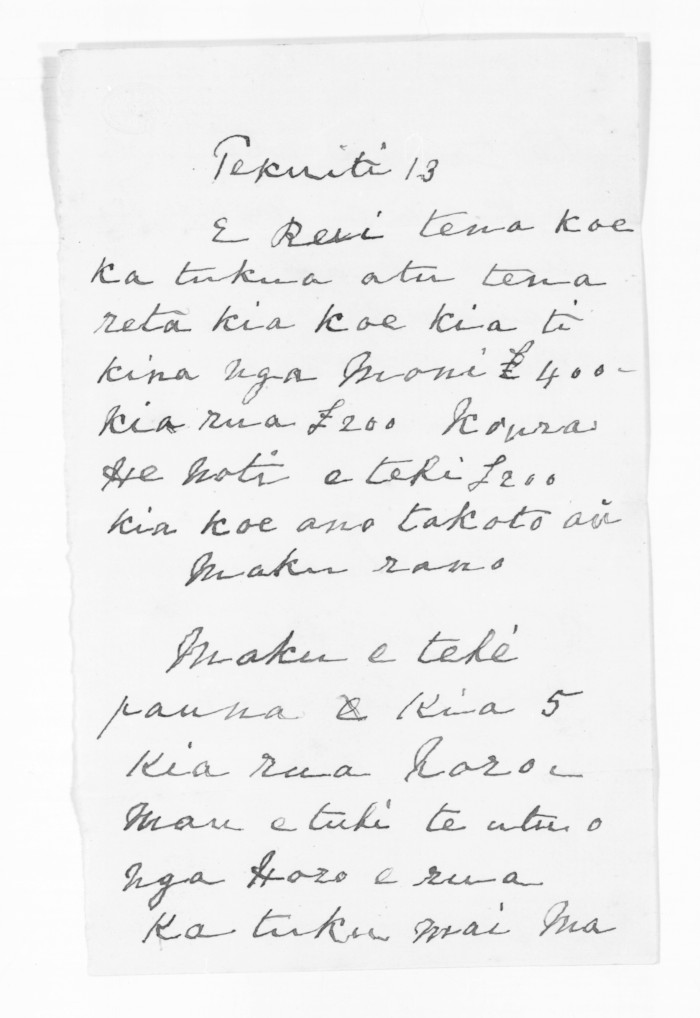 Tekuiti 13
E Rewi tena koe
ka tukua atu tena
reta kia koe kia ti
kina nga Moni £400-
kia rua £200 Koura
He Noti e tehi £200
kia koe ano takoto ai
Maku rano
Maku e tehi
pauna kia 5
kia rua Horo
Mau e tuhi te utu o
nga Horo e rua
Ka tuku mai Ma